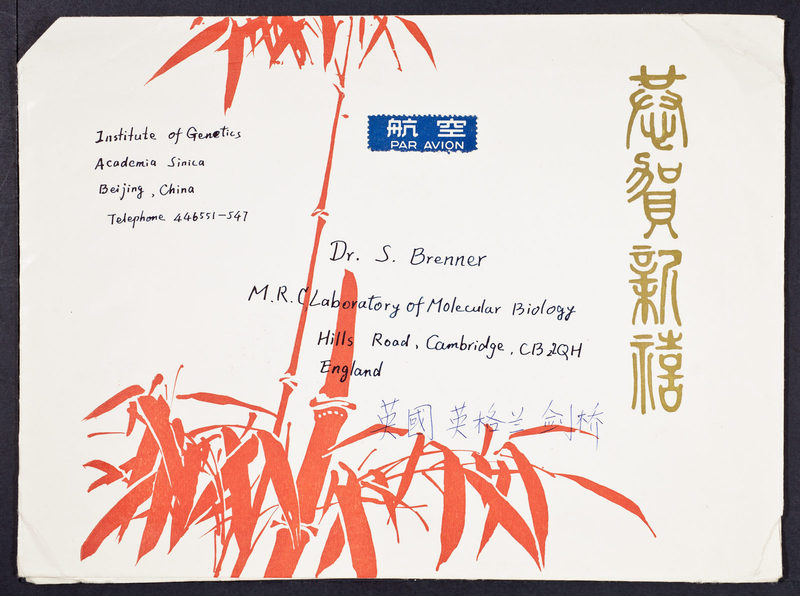 Institute of Genetics
Academia Sinica
Beijing, China
Telephone 446551-547
航空
PAR AVION
Dr. S. Brenner
M.R.C, Laboratory of Molecular Biology
Hills Road, Cambridge, CB2 2QH
England
英國 英格兰 剑桥
恭賀新禧